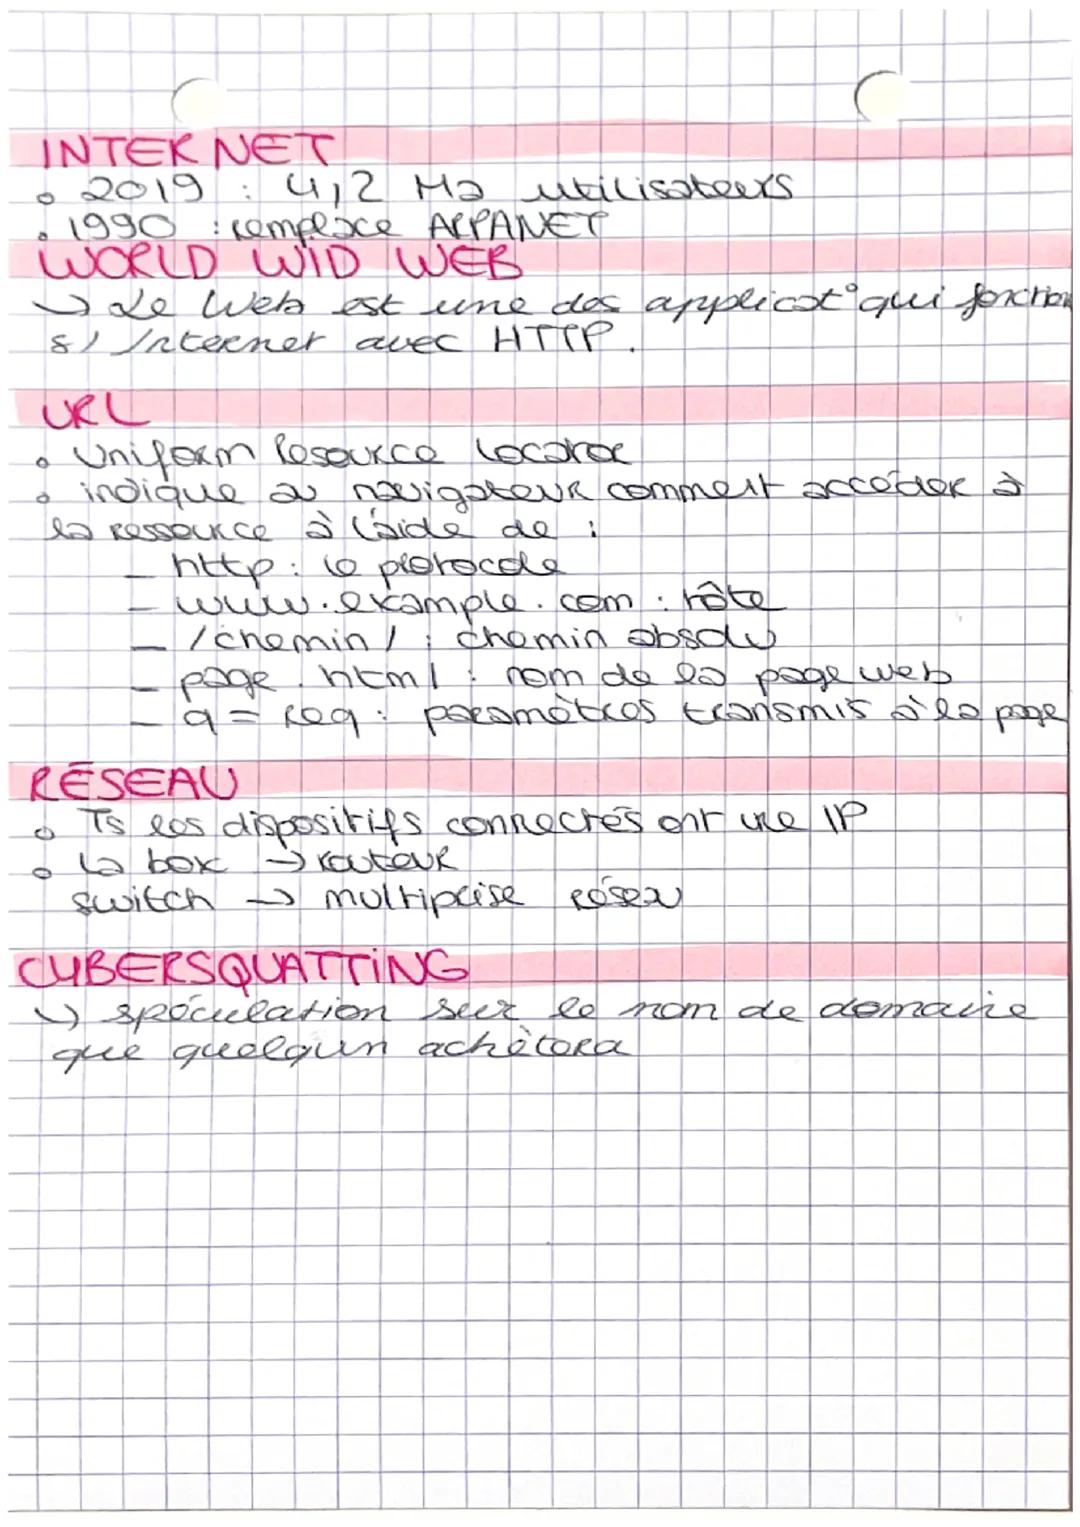 INTERNET
• 2019 : 4,2 Ma utilisateurs
• 1990 : remplace ARPANET
WORLD WID WEB
↳ Le Web est une des applicat° qui fonction
s/ Internet avec HTTP.
URL
• Uniform Resource Locator
• indique au navigateur comment accéder à
la ressource à l'aide de :
– http : le protocole
– www.example.com : hôte
– /chemin/ : chemin absolu
– page.html : nom de la page web
– q = req : paramètres transmis à la page
RÉSEAU
• Ts les dispositifs connectés ont une IP
• La box → routeur
switch → multiprise réseau
CYBERSQUATTING
↳ spéculation sur le nom de domaine
que quelqun achètera